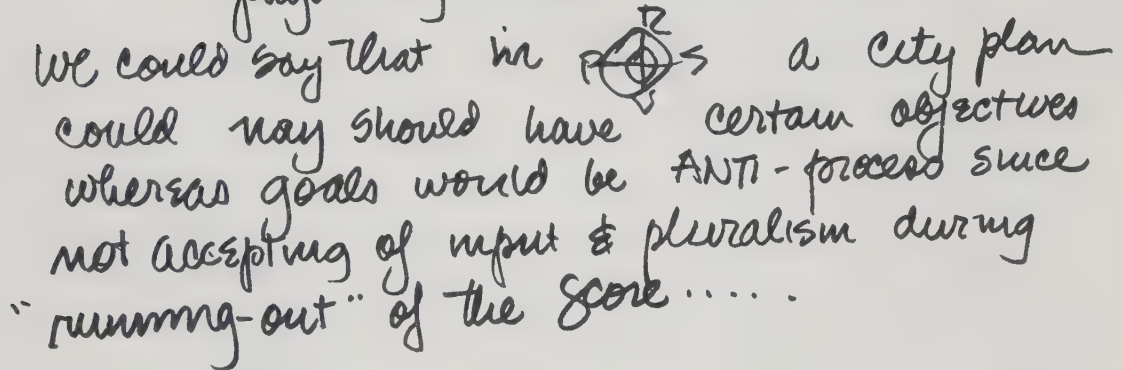 we could say that in R P S V a city plan
could nay should have certain objectives
whereas goals would be ANTI-process since
not accepting of input & pluralism during
"running-out" of the score.....